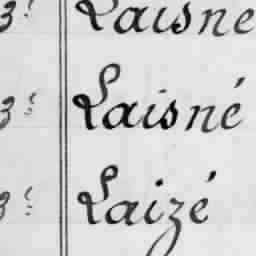 3e Laisne
3e Laisné
3e Laizé